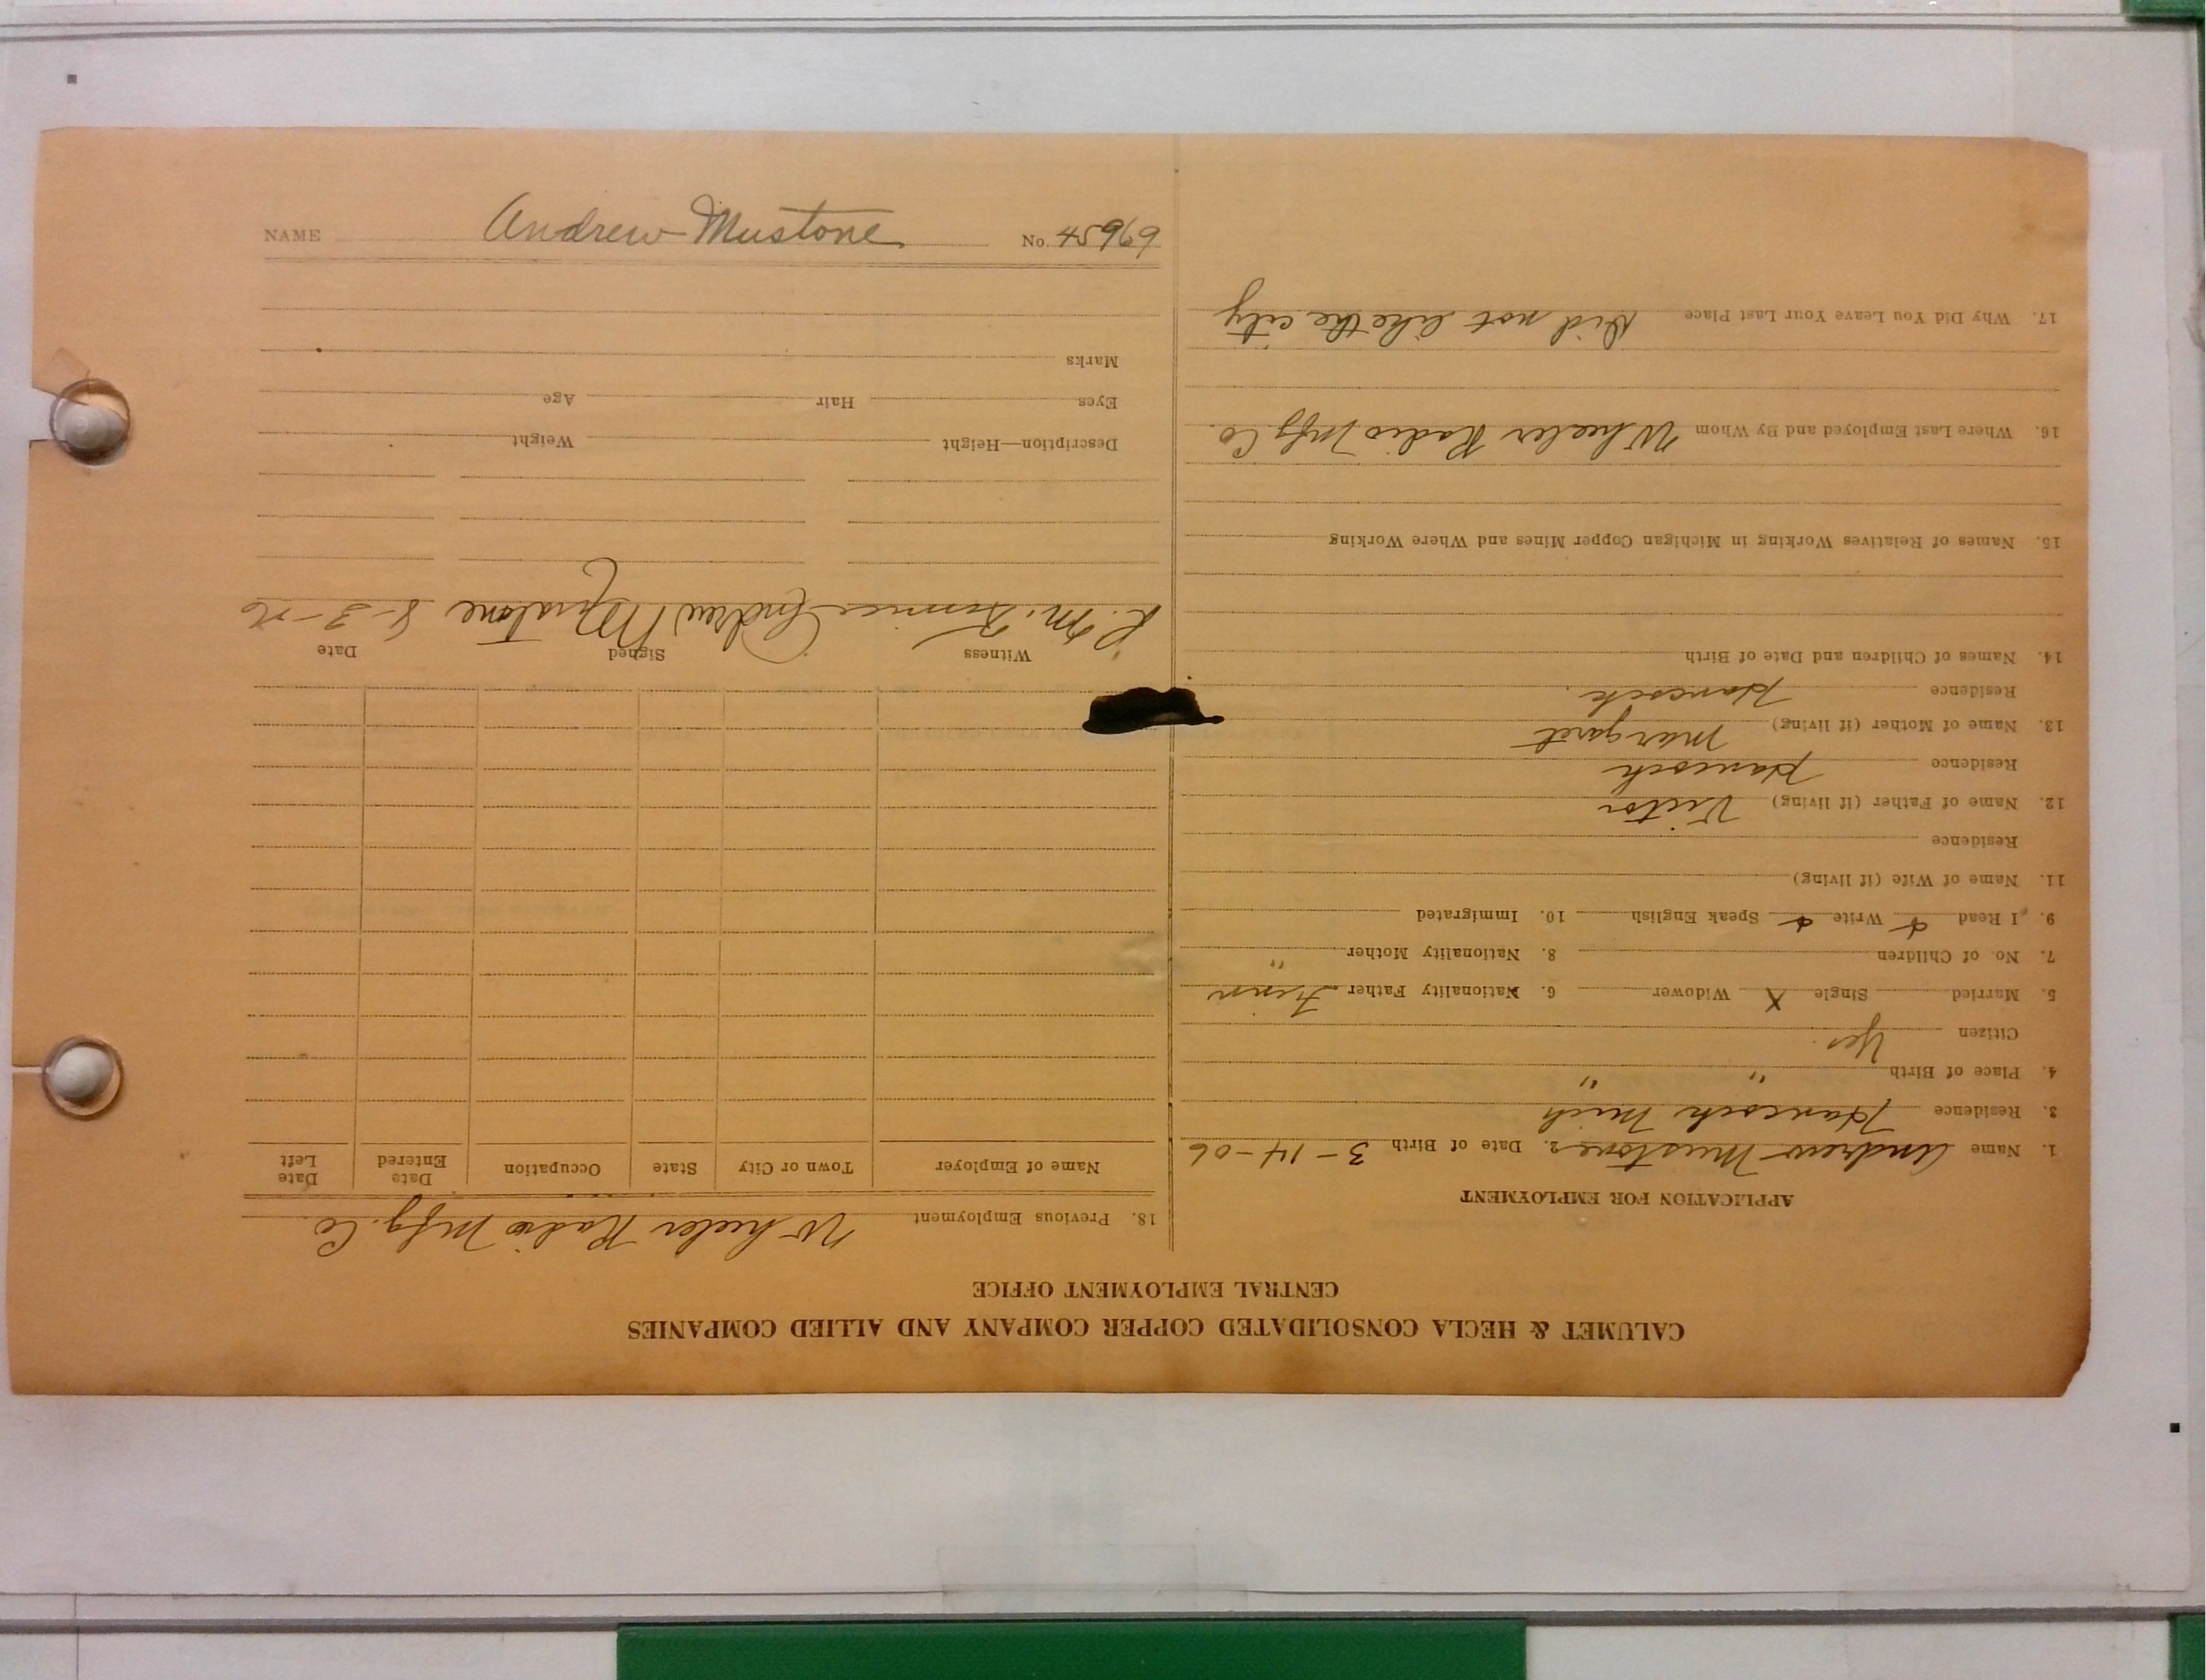 CALUMET & HECLA CONSOLIDATED COPPER COMPANY AND ALLIED COMPANIES
CENTRAL EMPLOYMENT OFFICE
APPLICATION FOR EMPLOYMENT
1. Name Andrew Mustone 2. Date of Birth 3-14-06
3. Residence Hancock Mich
4. Place of Birth " "
Citizen Yes.
5. Married Single X Widower 6. Nationality Father Finn
7. No. of Children 8. Nationality Mother "
9. I Read Write Speak English 10. Immigrated
11. Name of Wife (if living)
Residence
12. Name of Father (if living) Victor
Residence Hancock
13. Name of Mother (if living) Margaret
Residence Hancock
14. Names of Children and Date of Birth
15. Names of Relatives Working in Michigan Copper Mines and Where Working
16. Where Last Employed and By Whom Wheeler Radio Mfg. Co.
17. Why Did You Leave Your Last Place Did not like the city
18. Previous Employment Wheeler Radio Mfg. Co.
Name of Employer Town or City State Occupation Date Entered Date Left
Witness Signed Date
R. M. Andrew Mustone 8-3-26
Description—Height Weight
Eyes Hair Age
Marks
NAME Andrew Mustone No. 45969